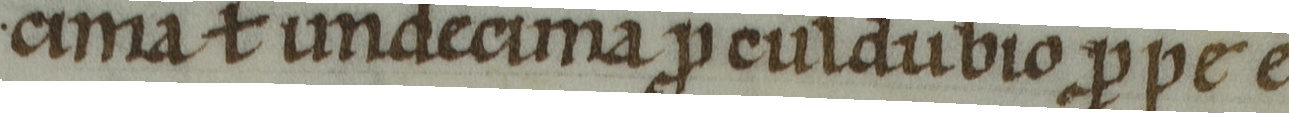 cima ł undecima ꝓculdubio ꝓpe e